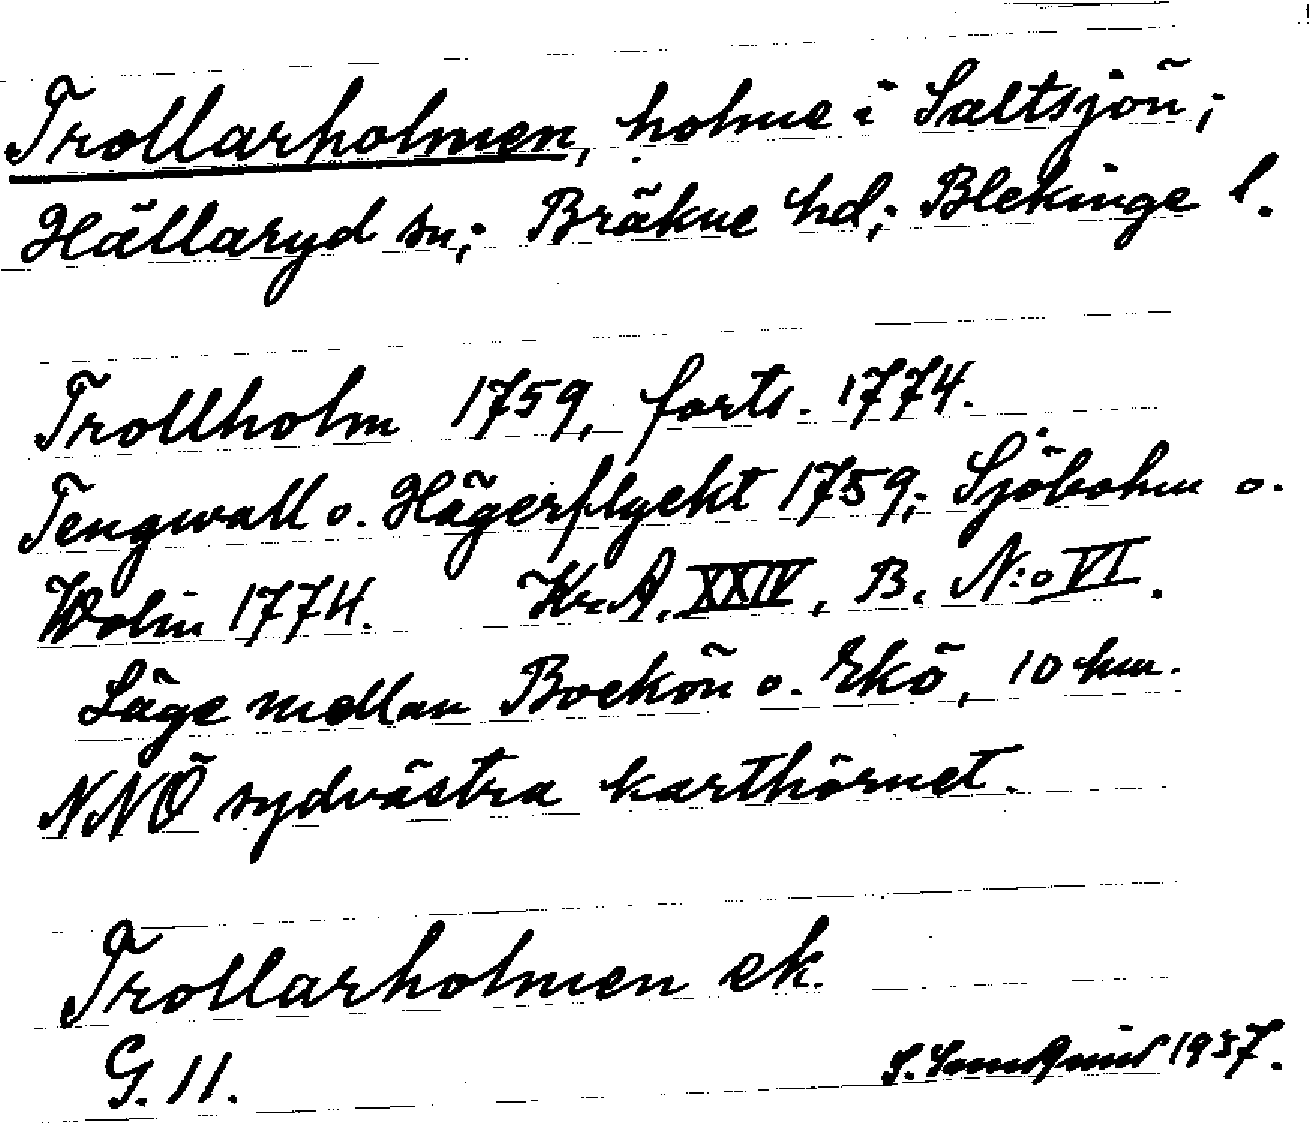 Trollarholmen, holme i Saltsjön;
Hällaryd sn; Bräkne hd; Blekinge l.
Trollholm 1759, forts. 1774.
Tengwall o. Hägerflyckt 1759; Sjöbohm o.
Wolin 1774. Kr.A. XXIV, B. N:o VI.
Läge mellan Bockön o. Ekö, 10 km.
NNÖ sydvästra karthörnet.
Trollarholmen ek.
G. 11.
S. 1937.